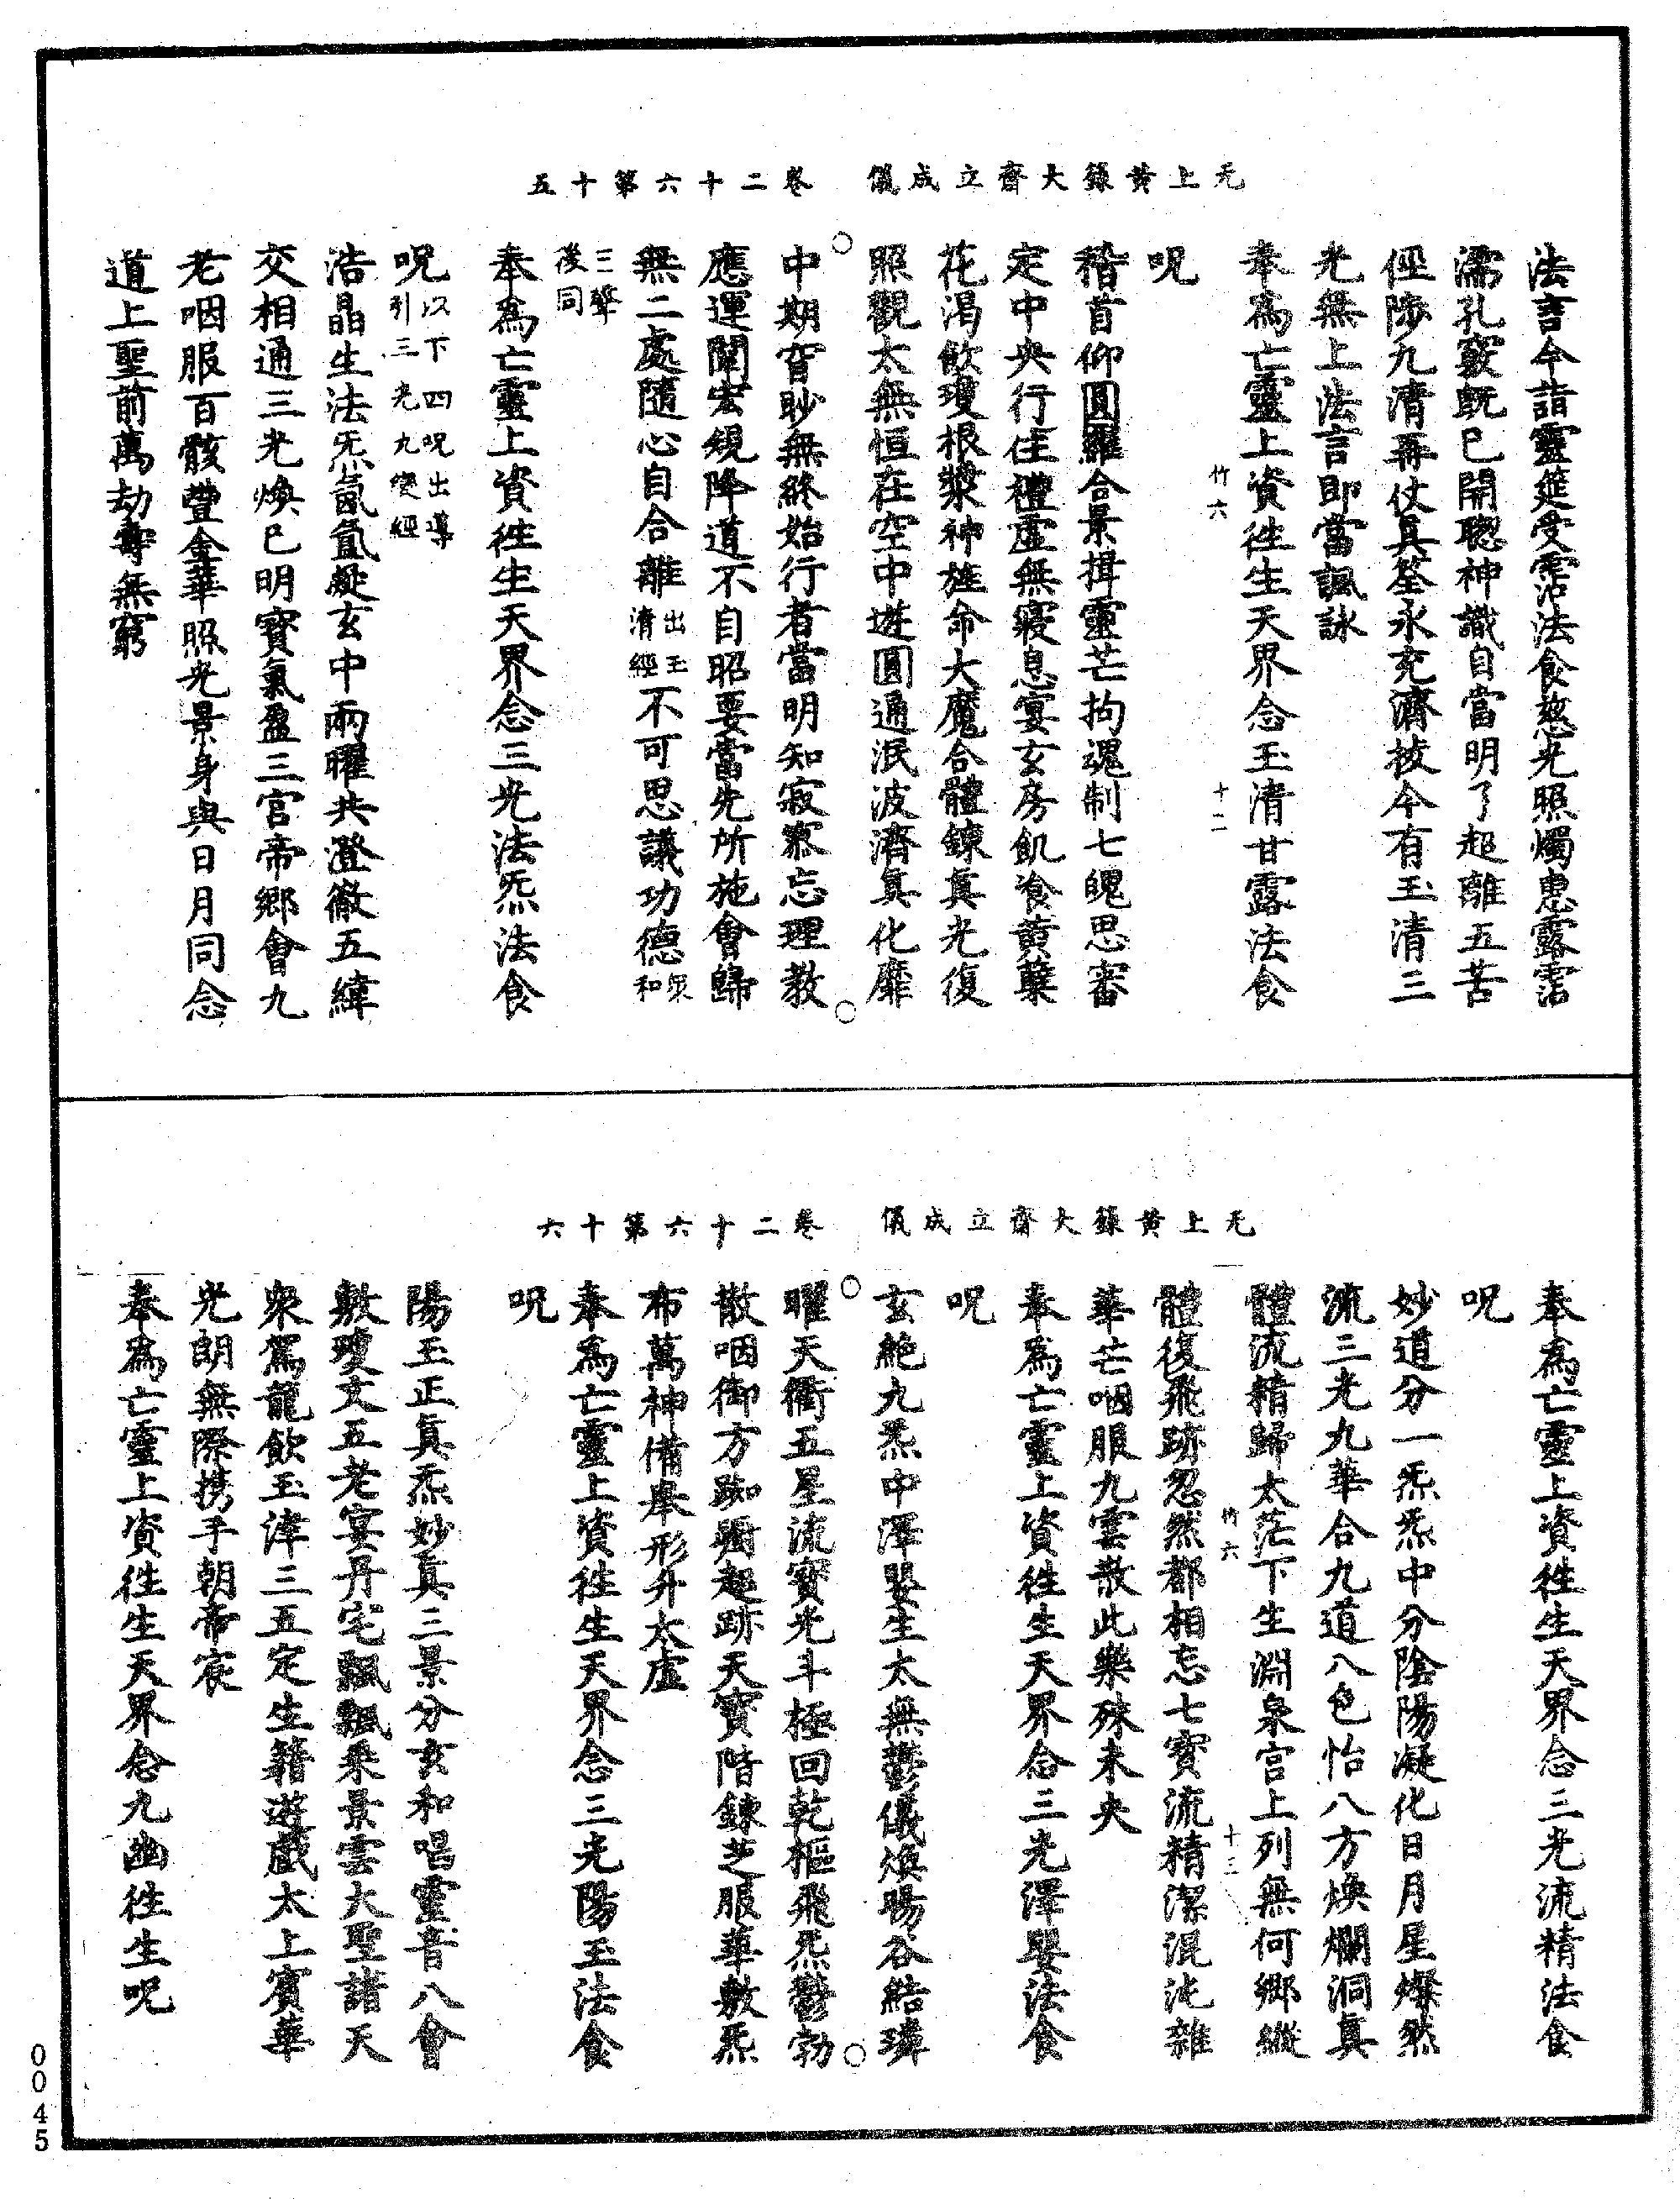 无上黃籙大齋立成儀　卷二十六第十五
法言今詣靈筵受霑法食慈光照燭惠露霑
濡孔竅既已開聰神識自當明了超離五苦
俓陟九清再仗真筌永充濟拔今有玉清三
光無上法言即當諷詠
奉為亡靈上資徃生天界念玉清甘露法食
竹六　十二
呪
稽首仰圓羅合景揖靈芒拘魂制七魄思審
定中央行住禮虛無寢息宴玄房飢飡黃蘂
花渴飲瓊根漿神旌命大魔合體鍊真光復
照觀太無恒在空中遊圓通泯波濟真化靡
中期窅眇無終始行者當明知寂寞忘理教
應運闡宏規降道不自昭要當先所施會歸
無二處隨心自合離出玉清經不可思議功德衆和
三聲後同
奉為亡靈上資徃生天界念三光法炁法食
呪以下四呪出導引三光九變經
浩晶生法炁氤氳凝玄中兩曜共澄徹五緯
交相通三光煥已明寶氣盈三官帝鄉會九
老咽服百骸豐金華照光景身與日月同念
道上聖前萬劫壽無窮
无上黃籙大齋立成儀　卷二十六第十六
奉為亡靈上資徃生天界念三光流精法食
呪
妙道分一炁炁中分陰陽凝化日月星燦然
流三光九華合九道八色怡八方煥爛洞真
體流精歸太茫下生淵泉宫上列無何鄉縱
竹六　十三
體復飛跡忽然都相忘七寶流精潔混沌雜
華芒咽服九雲散此樂殊未央
奉為亡靈上資徃生天界念三光澤嬰法食
呪
玄絶九炁中澤嬰生太無鬱儀煥暘谷結璘
曜天衢五星流寶光斗極回乾樞飛炁鬱勃
散咽御方踟躅超跡天寶階鍊芝服華敷炁
布萬神備舉形升太虛
奉為亡靈上資徃生天界念三光陽玉法食
呪
陽玉正真炁妙真三景分玄和唱靈音八會
敷瓊文五老宴丹宅飄飄乘景雲大聖諸天
衆駕龍飲玉津三五定生籍遊戲太上賓華
光朗無際携手朝帝宸
奉為亡靈上資徃生天界念九幽徃生呪
0045